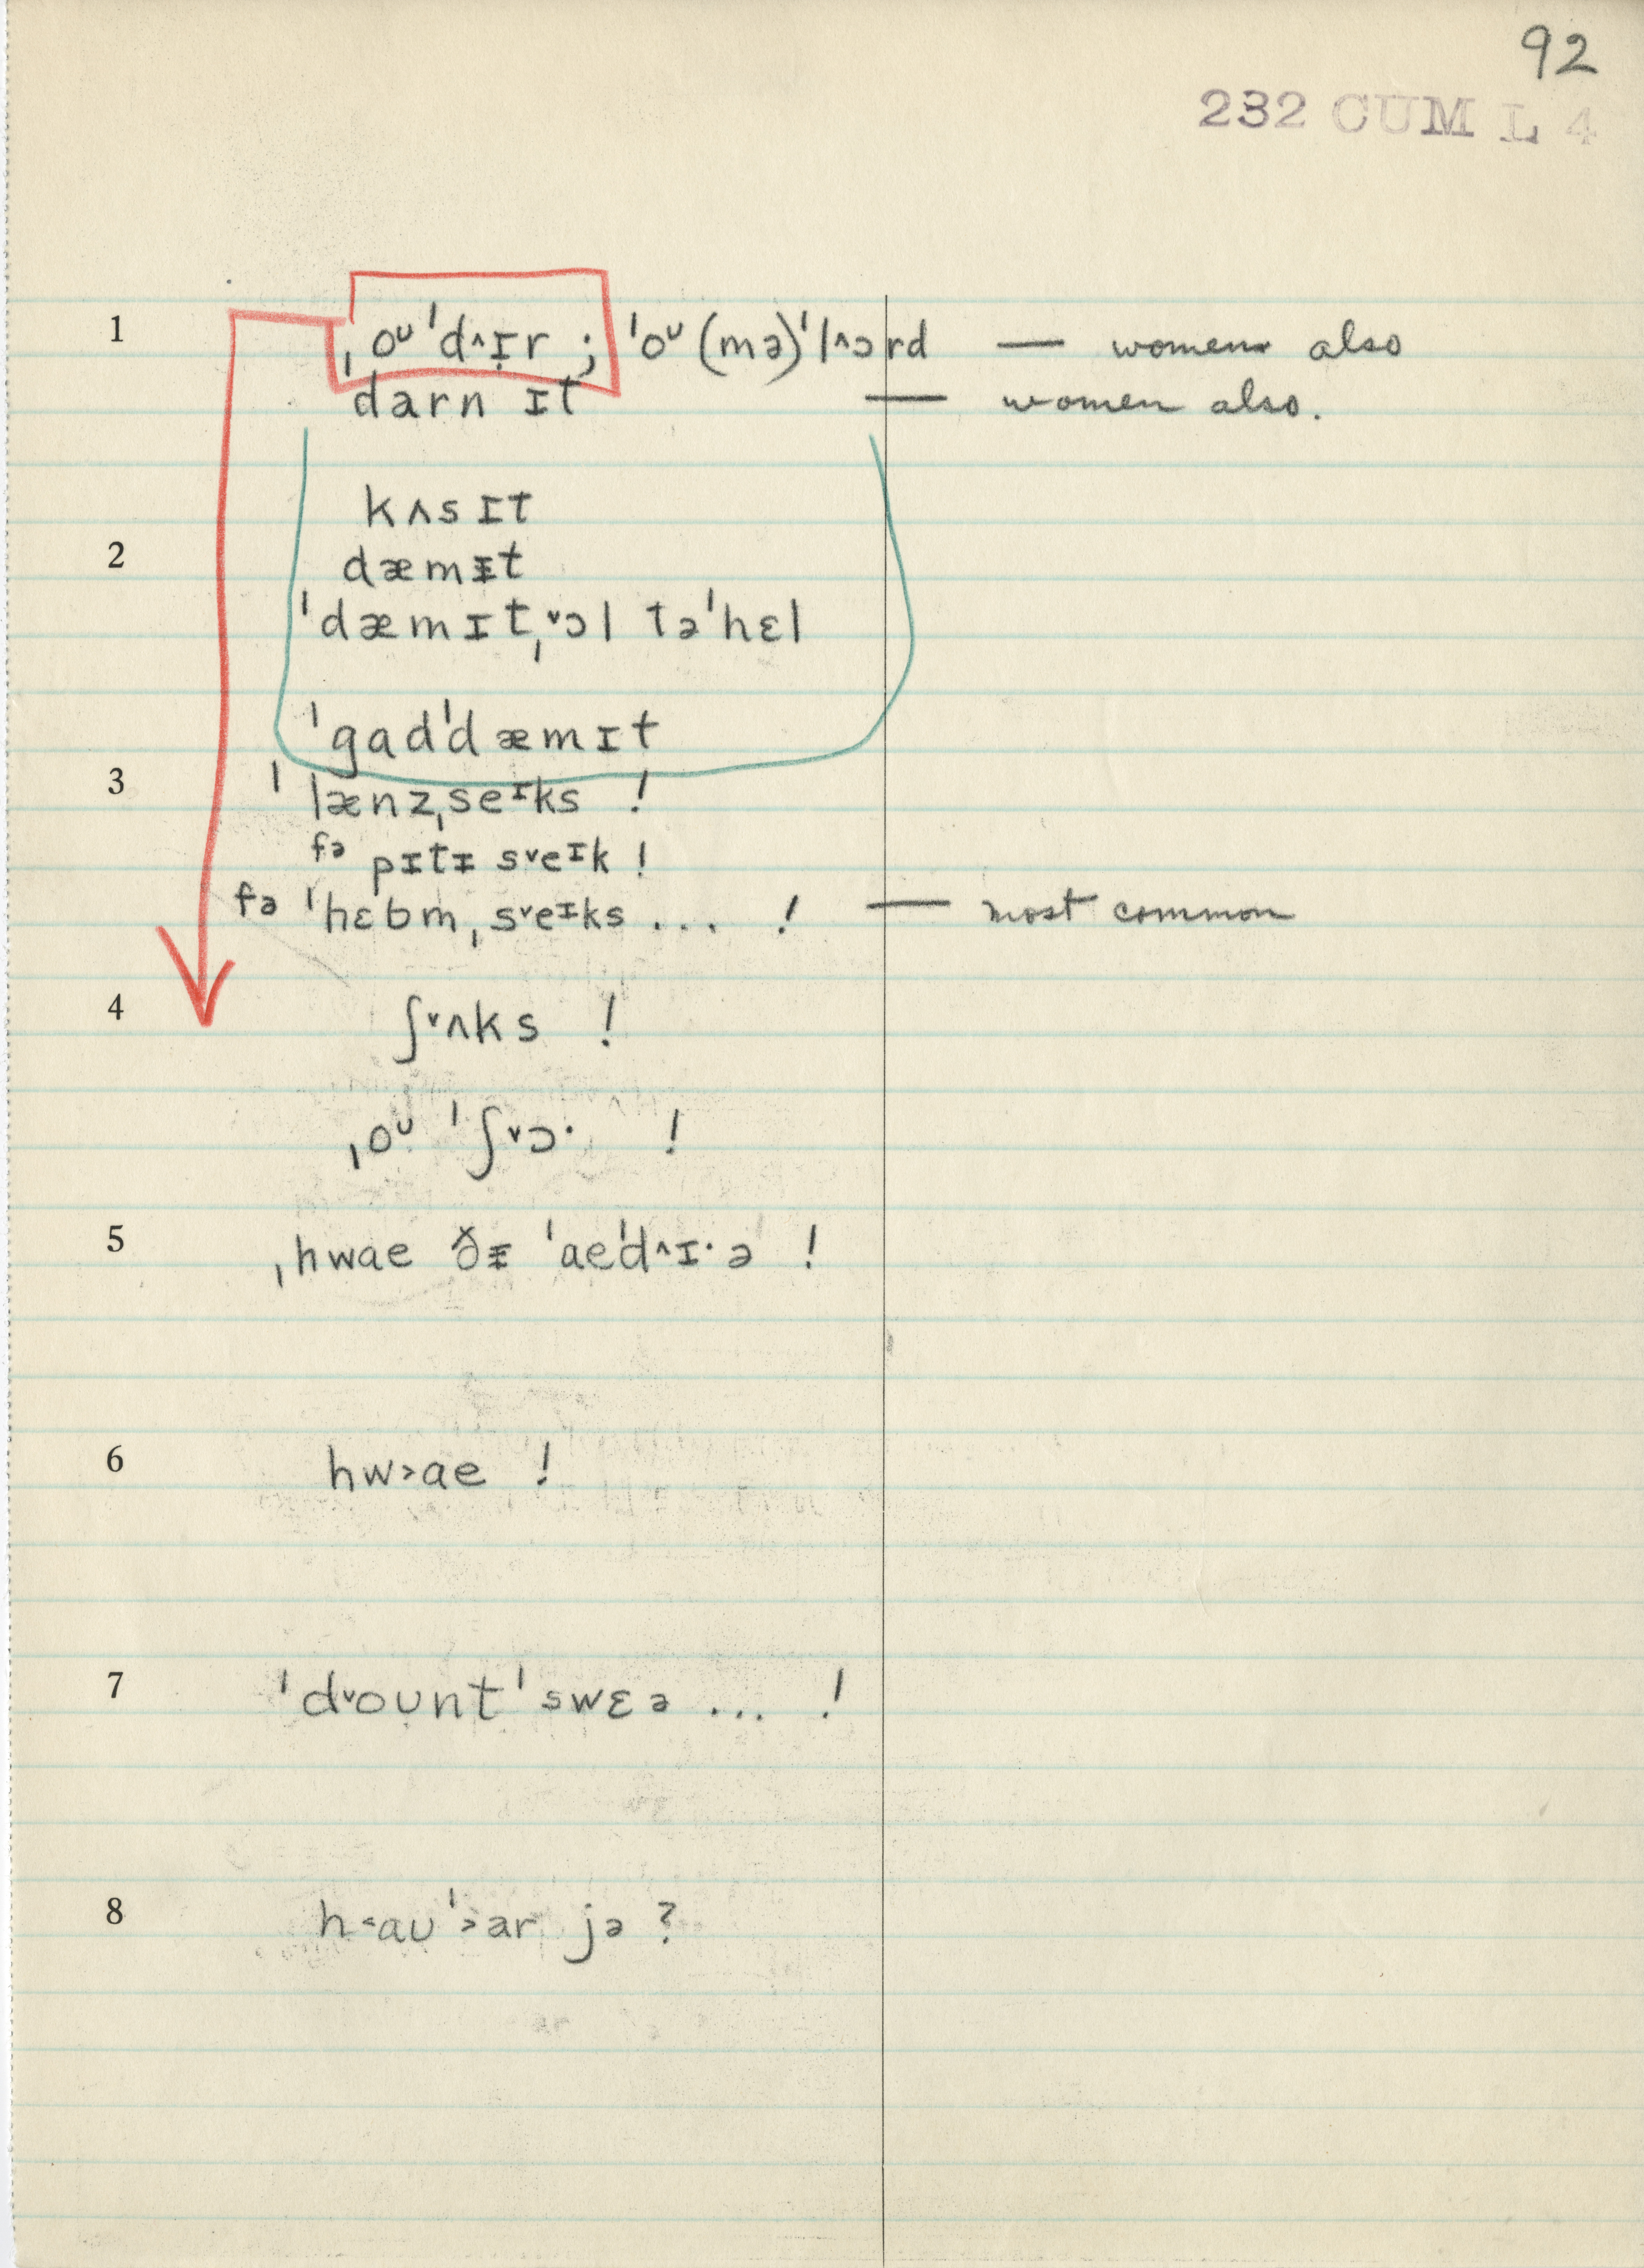 92
232 CUM L 4
1 ˌoᴜ ˈd^ɪr ; ˈoᴜ (mə)ˈl^ɔrd — women also
darn ɪt — women also.
kʌs ɪt
2
dæmɪt
ˈdæmɪtˌ˅ɔl təˈhɛl
ˈgadˈdæmɪt
3
ˈlænzˌseɪks !
fə pɪtɪ s˅eɪk !
fə ˈhɛbmˌs˅eɪks ... ! — most common
4 ʃ˅ʌks !
ˌoᴜ ˈʃ˅ɔ· !
5 ˌhwae ðɪ ˈaeˈd^ɪ·ə !
6 hw>ae !
7 ˈd˅oᴜntˈswɛə ... !
8 h<aᴜˈ>ar jə ?